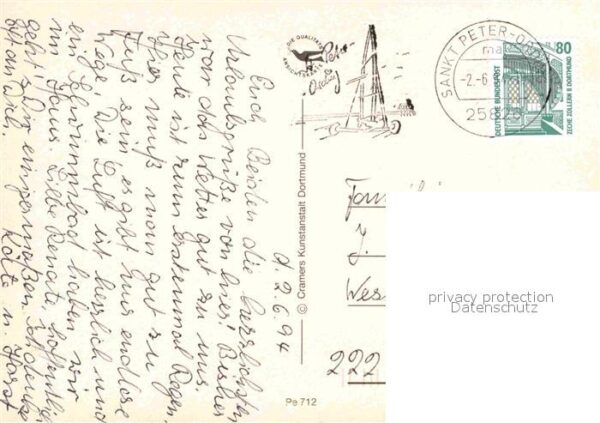 d. 2.6.94
Euch Beiden die herzlichsten
Urlaubsgrüße von hier! Bisher
war das Wetter gut zu uns
Heute ist zum erstenmal Regen.
Hier muß man gut zu
Fuß sein, es gibt nur endlose
Wege. Die Luft ist herrlich und
ein Schwimmbad haben wir
im Haus. Liebe Renate, hoffentlich
geht es Dir einigermaßen. Ich denke
oft an Dich.
Käte u. Horst
DIE QUALITÄTS
ANSICHTSKARTE
St. Peter-
Ording
SANKT PETER-ORD
ma
-2.-6.
25823
80
DEUTSCHE BUNDESPOST
ZECHE ZOLLERN II DORTMUND
© Cramers Kunstanstalt Dortmund
Pe 712
Fam
J.
Wes
222
privacy protection
Datenschutz